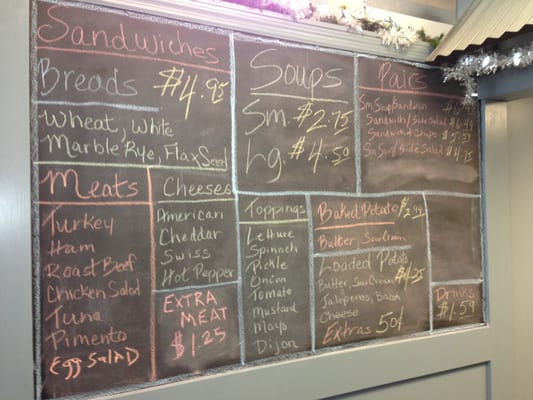 Sandwiches
Breads $4.95
Wheat, White
Marble Rye, Flax Seed
Meats
Turkey
Ham
Roast Beef
Chicken Salad
Tuna
Pimento
Egg Salad
Cheeses
American
Cheddar
Swiss
Hot Pepper
EXTRA
MEAT
$1.25
Soups
Sm. $2.75
Lg. $4.50
Toppings
Lettuce
Spinach
Pickle
Onion
Tomato
Mustard
Mayo
Dijon
Pairs
Sandwich/Side Salad
Sandwich & Chips
Sm Soup/Side Salad $4.75
Baked Potato
Butter, Sour Cream
Loaded Potato
Butter, Sour Cream $4.25
Jalepenos, Bacon
Cheese
Extras 50¢
Drinks
$1.59